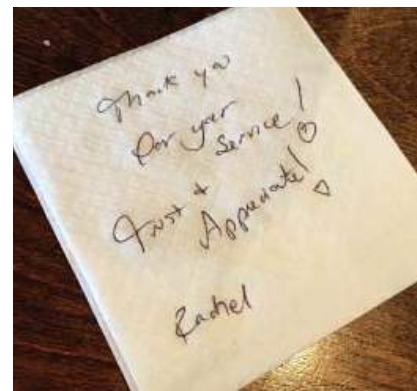 Thank you
for your
Service!
Trust &
Appreciate!
Rachel